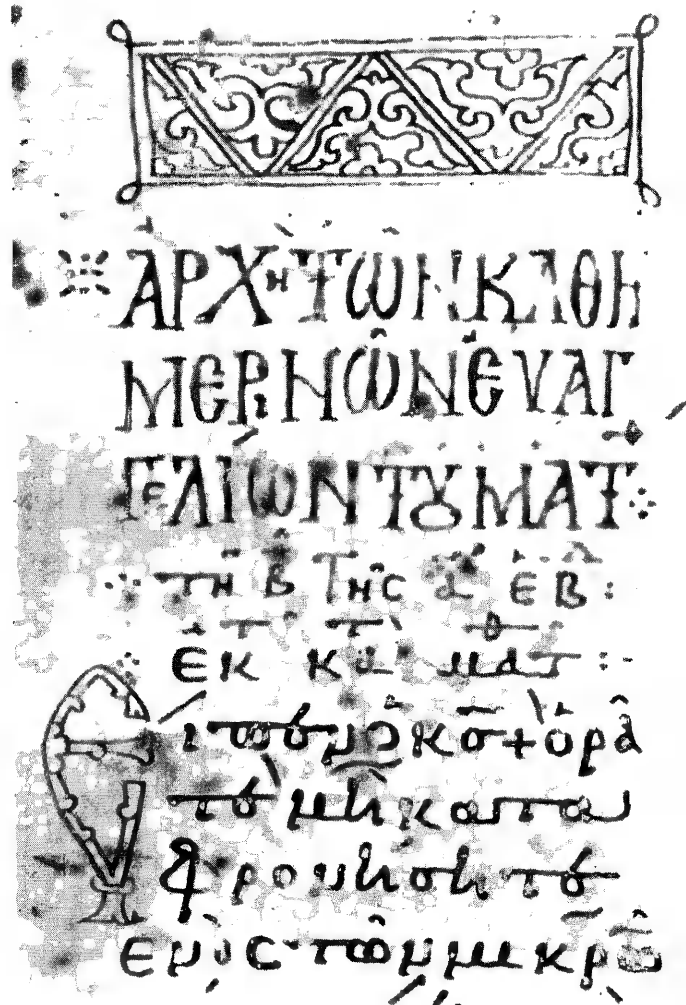 ἈΡΧῊ ΤῶΝ ΚΑΘΗ
ΜΕΡΙΝῶΝ ΕὐΑΓ
ΓΕΛΊΩΝ ΤȢ ΜΑΤ
τῆ β τῆς α ἑβ:
ἐκ τ κατ ματθ:
Εἶπεν ὁ κς ὁρᾶ
τε μὴ κατα
φρονήσητε
ἑνὸς τῶν μικρῶ